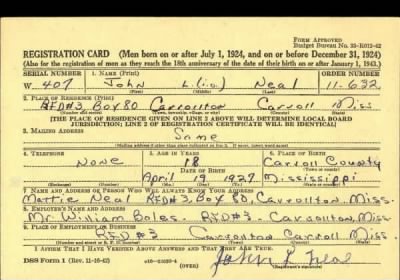 FORM APPROVED
Budget Bureau No. 33-R012-42
REGISTRATION CARD (Men born on or after July 1, 1924, and on or before December 31, 1924)
(Also for the registration of men as they reach the 18th anniversary of the date of their birth on or after January 1, 1943.)
SERIAL NUMBER 1. NAME (Print) ORDER NUMBER
W 407 John L.(i.o) Neal 11-632
2. PLACE OF RESIDENCE (Print)
RFD#3, Box 80 Carrollton Carroll Miss
[THE PLACE OF RESIDENCE GIVEN ON LINE 2 ABOVE WILL DETERMINE LOCAL BOARD
JURISDICTION; LINE 2 OF REGISTRATION CERTIFICATE WILL BE IDENTICAL]
3. MAILING ADDRESS
Same
[Mailing address if other than place indicated on line 2. If same, insert word same]
4. TELEPHONE 5. AGE IN YEARS 6. PLACE OF BIRTH
None 18 Carroll County
DATE OF BIRTH
April 19 1927 Mississippi
(Exchange) (Number) (Mo.) (Day) (Yr.) (State or country)
7. NAME AND ADDRESS OF PERSON WHO WILL ALWAYS KNOW YOUR ADDRESS
Mattie Neal RFD#3, Box 80, Carrollton, Miss.
8. EMPLOYER'S NAME AND ADDRESS
Mr. William Boles. RFD#3. Carrollton, Miss.
9. PLACE OF EMPLOYMENT OR BUSINESS
RFD#3 Carrollton Carroll Miss.
(Number and street or R. F. D. number) (Town) (County) (State)
I AFFIRM THAT I HAVE VERIFIED ABOVE ANSWERS AND THAT THEY ARE TRUE.
DSS Form 1 (Rev. 11-16-42) (OVER) John L Neal